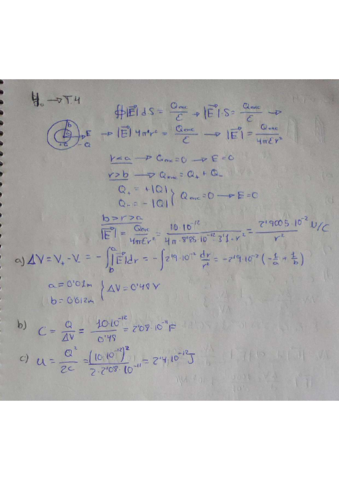 4. → T.4
∯|E⃗|dS = Qenc/ε → |E⃗|S = Qenc/ε →
|E⃗| 4πr² = Qenc/ε → |E⃗| = Qenc/4πεr²
b a E
-Q
r<a → Qenc=0 → E=0
r>b → Qenc = Qa + Qb
Qa = +|Q|
Qb = -|Q| } Qenc=0 → E=0
b>r>a
|E⃗| = Qenc/4πεr² = 10·10⁻¹²/4π·8'85·10⁻¹²·3'1·r² = 2'9003·10⁻²/r² N/C
a) ΔV = Va - Vb = -∫|E⃗|dr = -∫2'9·10⁻² dr/r² = -2'9·10⁻² (-1/a + 1/b)
a = 0'01m
b = 0'012m { ΔV = 0'48V
b) C = Q/ΔV = 10·10⁻¹²/0'48 = 2'08·10⁻¹¹F
c) U = Q²/2C = (10·10⁻¹²)²/2·2'08·10⁻¹¹ = 2'4·10⁻¹²J